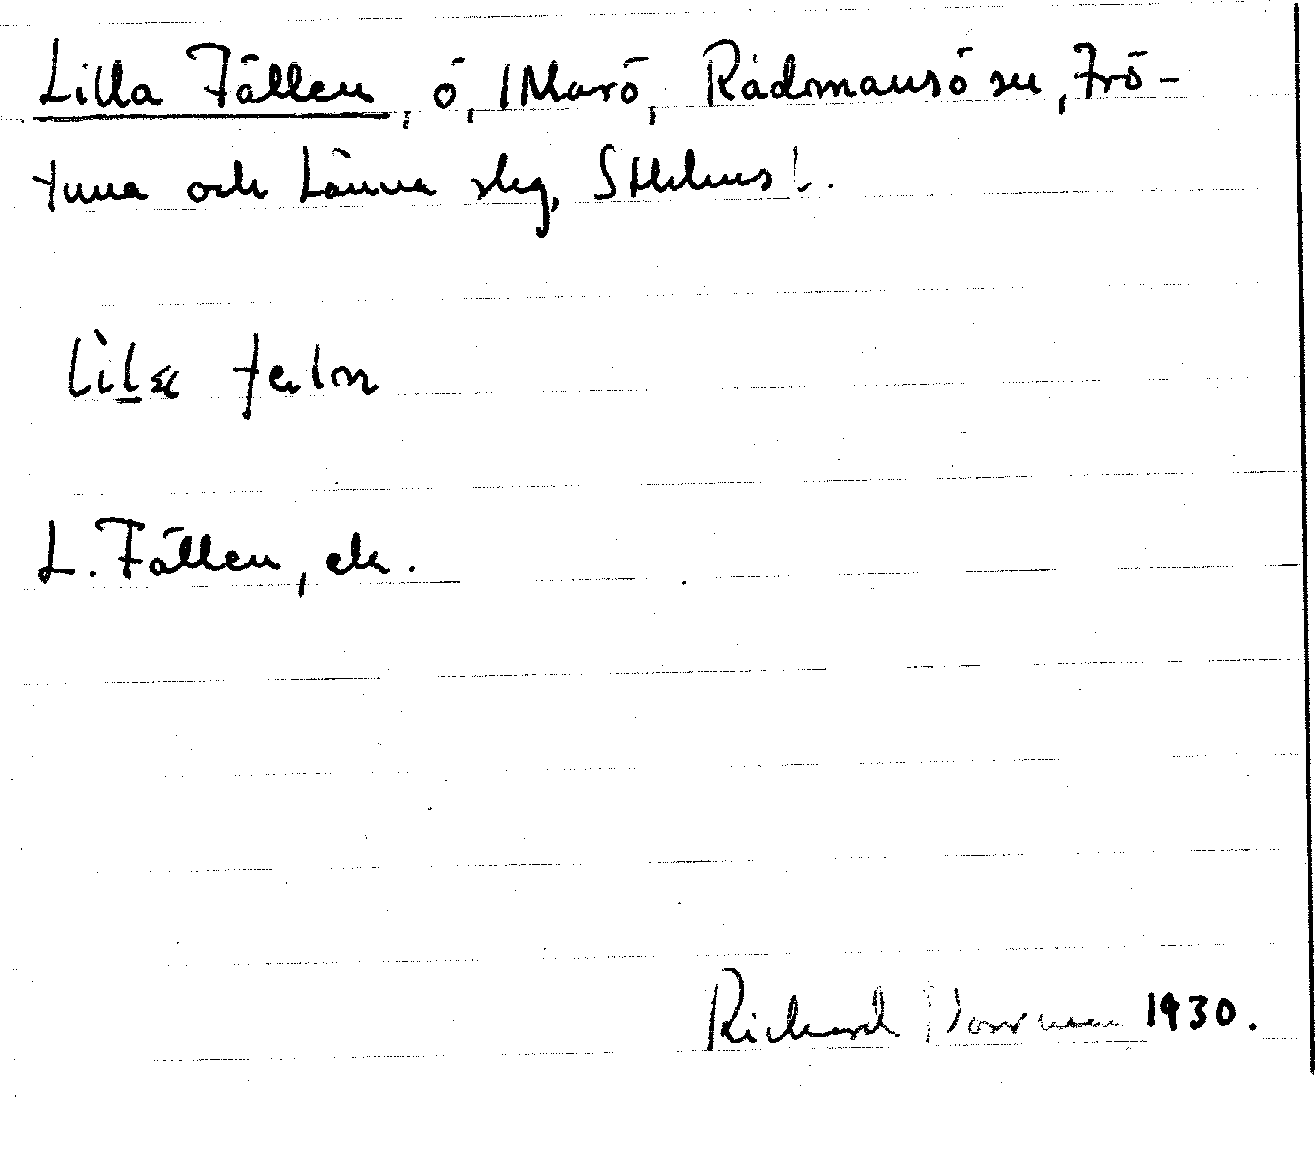 Lilla Fällen, ö, 1 Marö, Rådmansö sn, Frö-
tuna och Länna skg, Sthlms l.
lìlæ felon
L. Fällen, ek.
Richard Norrman 1930.